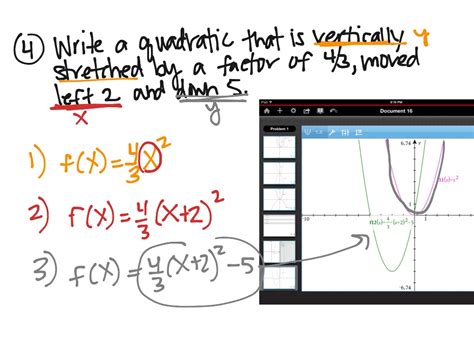 ④ Write a quadratic that is vertically y
stretched by a factor of 4/3, moved
left 2 and down 5.
x y
1) f(x) = 4/3 x²
2) f(x) = 4/3 (x+2)²
3) f(x) = 4/3 (x+2)² - 5
Document 16
Problem 1
6.74 y
1
-10 1
-6.74